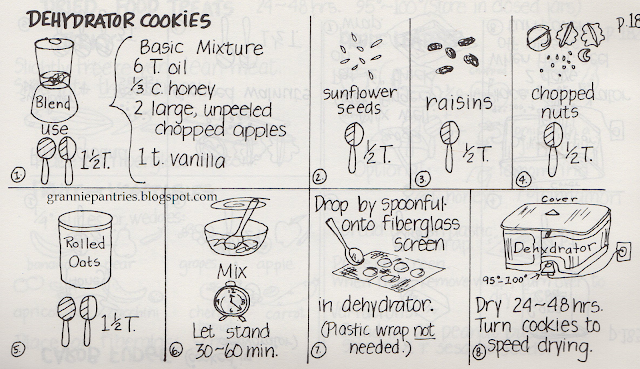 DEHYDRATOR COOKIES
p.18
Blend
use
1½T.
1.
Basic Mixture
6 T. oil
⅓ c. honey
2 large, unpeeled
chopped apples
1 t. vanilla
sunflower
seeds
½T.
2.
raisins
½T.
3.
chopped
nuts
½T.
4.
granniepantries.blogspot.com
Rolled
Oats
1½T.
5.
Mix
Let stand
30~60 min.
6.
Drop by spoonful
onto fiberglass
screen
in dehydrator.
(Plastic wrap not
needed.)
7.
Cover
Dehydrator
95°-100°
Dry 24~48 hrs.
Turn cookies to
speed drying.
8.